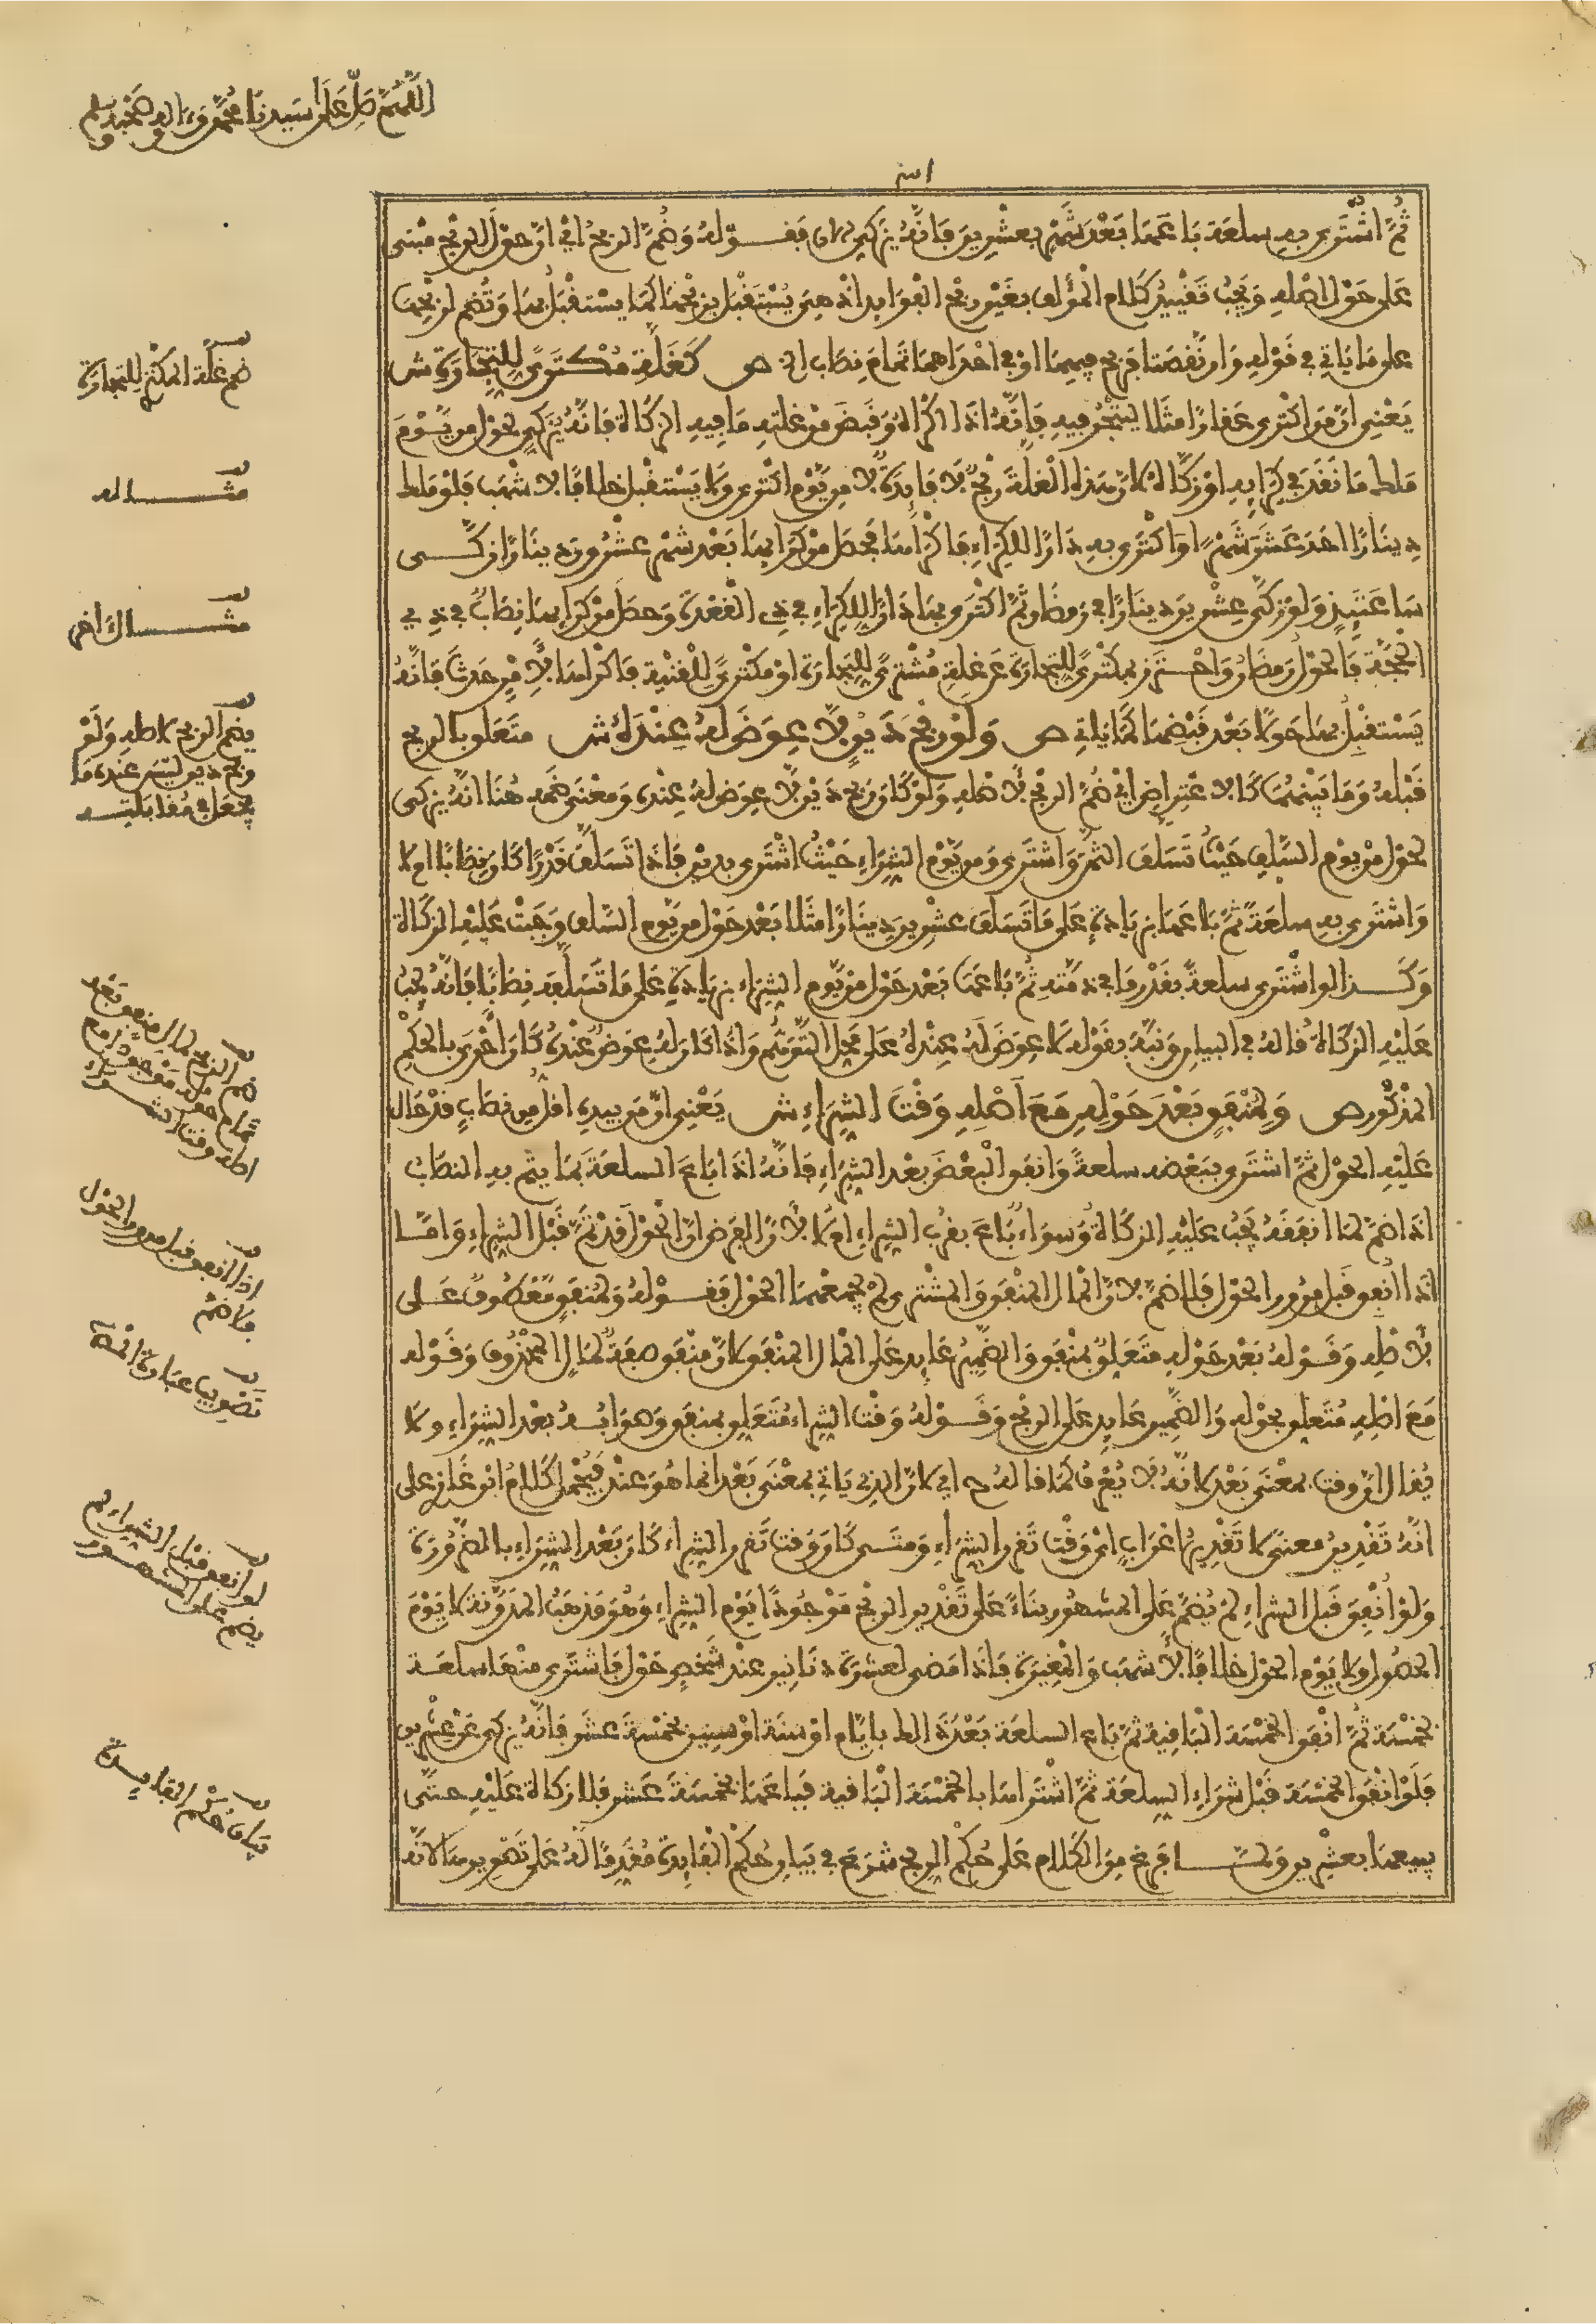 اللهم صل على سيدنا محمد وءاله وصحبه وسلم
ثم اشترى به سلعة باعها بعد شهر بعشرين فانه يزكي الان فقوله وضم الربح اي ان حول الربح مبنى
على حول اصله ويجب تقييد كلام المؤلف بغير ربح الفوايد اذ هي يستقبل بربحها كما يستقبل بها وتضم لربحها
على ما ياتي في قوله وان نقصتا فربح فيهما او في احداهما تمام نصاب الخ ص كغلة مكترى للتجارة ش
يعني ان من اكترى عقارا مثلا ليتجر فيه فانه اذا اكراه وقبض من غلته ما فيه الزكاة فانه يزكي لحول من يوم
ملك ما نقد في كرايه او زكاه لان هذه الغلة ربح لا فايدة لا من يوم اكترى ولا يستقبل خلافا لاشهب فلو ملك
دينارا احد عشر شهرا واكترى به دارا للكراء فاكراها فحصل من كرايها بعد شهر عشرون دينارا زكى
ساعتيذ ولو زكى عشرين دينارا في رمضان ثم اكترى بها دارا للكراء في ذي القعدة وحصل من كرايها نصاب في ذي
الحجة فالحول رمضان واحترز بمكترى للتجارة عن غلة مشترى للتجارة او مكترى للقنية فاكراها لامر حدث فانه
يستقبل بها حولا بعد قبضها كما ياتي ص ولو ربح دين لا عوض له عنده ش متعلق بالربح
قبله وما بينهما كالاعتراض اي ضم الربح لاصله ولو كان ربح دين لا عوض له عنده ومعنى ضمه هنا انه يزكى
لحول من يوم السلف حيث تسلف الثمن واشترى ومن يوم الشراء حيث اشترى بدين فاذا تسلف قدرا كان نصابا ام لا
واشترى به سلعة ثم باعها بزيادة على ما تسلف عشرين دينارا مثلا بعد حول من يوم السلف وجبت عليه الزكاة
وكذا لو اشترى سلعة بقدر ما في ذمته ثم باعها بعد حول من يوم الشراء بزيادة على ما تسلفه نصابا فانه يجب
عليه الزكاة قاله في البيان ونبه بقوله لا عوض له عنده على محل التوهم واذا كان له عوض عنده كان احرى بالحكم
المذكور ص ولمنفق بعد حوله مع اصله وقت الشراء ش يعني ان من بيده اقل من نصاب قد حال
عليه الحول ثم اشترى ببعضه سلعة وانفق البعض بعد الشراء فانه اذا باع السلعة بما يتم به النصاب
اذا ضم لما انفقه يجب عليه الزكاة وسواء باع بقرب الشراء ام لا لان الفرض ان الحول قد تم قبل الشراء واما
اذا انفق قبل مرور الحول فلا ضم لان المال المنفق والمشترى به لم يجمعهما الحول فقوله ولمنفق معطوف على
لاصله وقوله بعد حوله متعلق بمنفق والضمير عايد على المال المنفق لان منفق صفة لمال المحذوف وقوله
مع اصله متعلق بحوله والضمير عايد على الربح وقوله وقت الشراء متعلق بمنفق وهو انه بعد الشراء ولا
يقال ان وقت بمعنى بعد لانه لا يعرف كما قاله ح اي لان الذي ياتي بمعنى بعد انما هو عند فيحمل كلام ابن غازي على
انه تقدير معنى لا تقدير اعراب اي وقت تقرر الشراء ومتى كان وقت تقرر الشراء كان بعد الشراء بالضرورة
ولو انفق قبل الشراء لم يضم على المشهور بناء على تقدير الربح موجودا يوم الشراء وهو مذهب المدونة لا يوم
الحصول ولا يوم الحول خلافا لاشهب والمغيرة فاذا مضى لعشرة دنانير عند شخص حول فاشترى منها سلعة
بخمسة ثم انفق الخمسة الباقية ثم باع السلعة بعد ذلك بايام او سنة او سنين بخمسة عشر فانه يزكي عن عشرين
فلو انفق الخمسة قبل شراء السلعة ثم اشتراها بالخمسة الباقية فباعها بخمسة عشر فلا زكاة عليه حتى
يبيعها بعشرين ولما فرغ من الكلام على حكم الربح شرع في بيان حكم الفايدة مقدما له على تصويرها لانه
ضم غلة المكترى للتجارة
مثاله
مثال اخر
يضم الربح لاصله ولو
ربح دين ليس عنده ما
يجعل في مقابلته
ضم الربح لمال منفق بعد
تمام حوله مع
اصله وقت الشراء
اذا انفق قبل مرور الحول
فلا ضم
تصويب عبارة
لو انفق قبل الشراء لم
يضم على المشهور
بيان حكم الفايدة